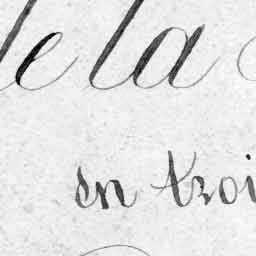 de la
en troi